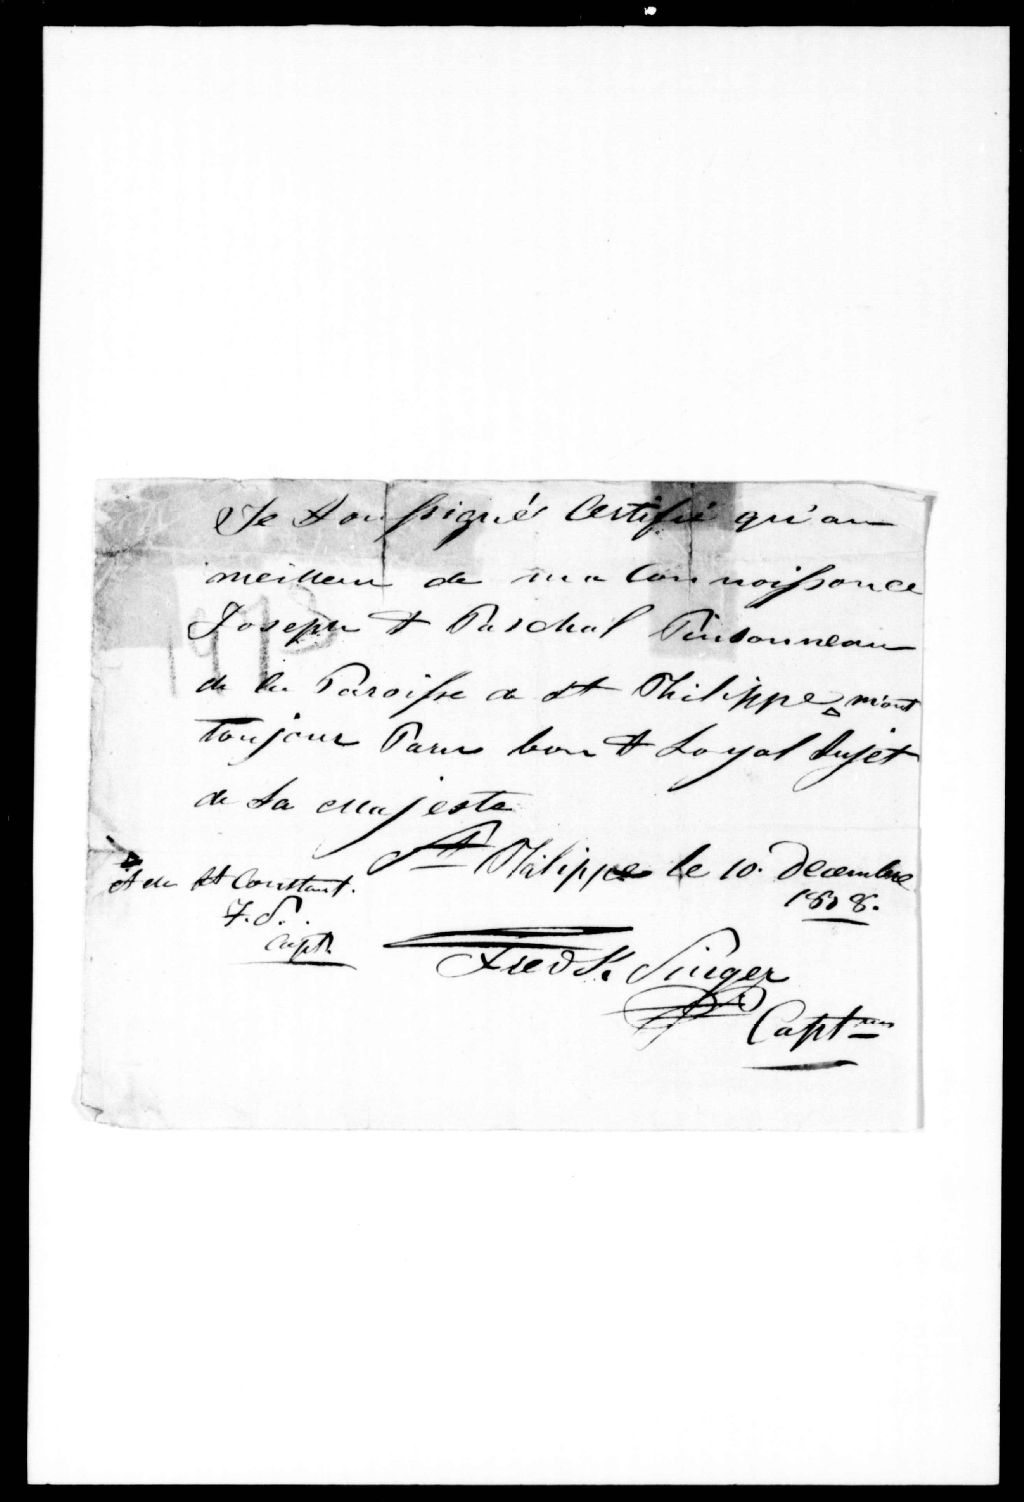 Je Soussigné Certifié qu'au
meilleur de ma Connoissance
Joseph & Paschal Pinsonneau
de la Paroisse de St Philippe m'ont
toujour Paru bon & Loyal Sujet
de Sa Majesté
St Philippe le 10. Decembre
1808.
et de St Constant.
F. S.
Capt.
Fredk. Singer
Captne
1973